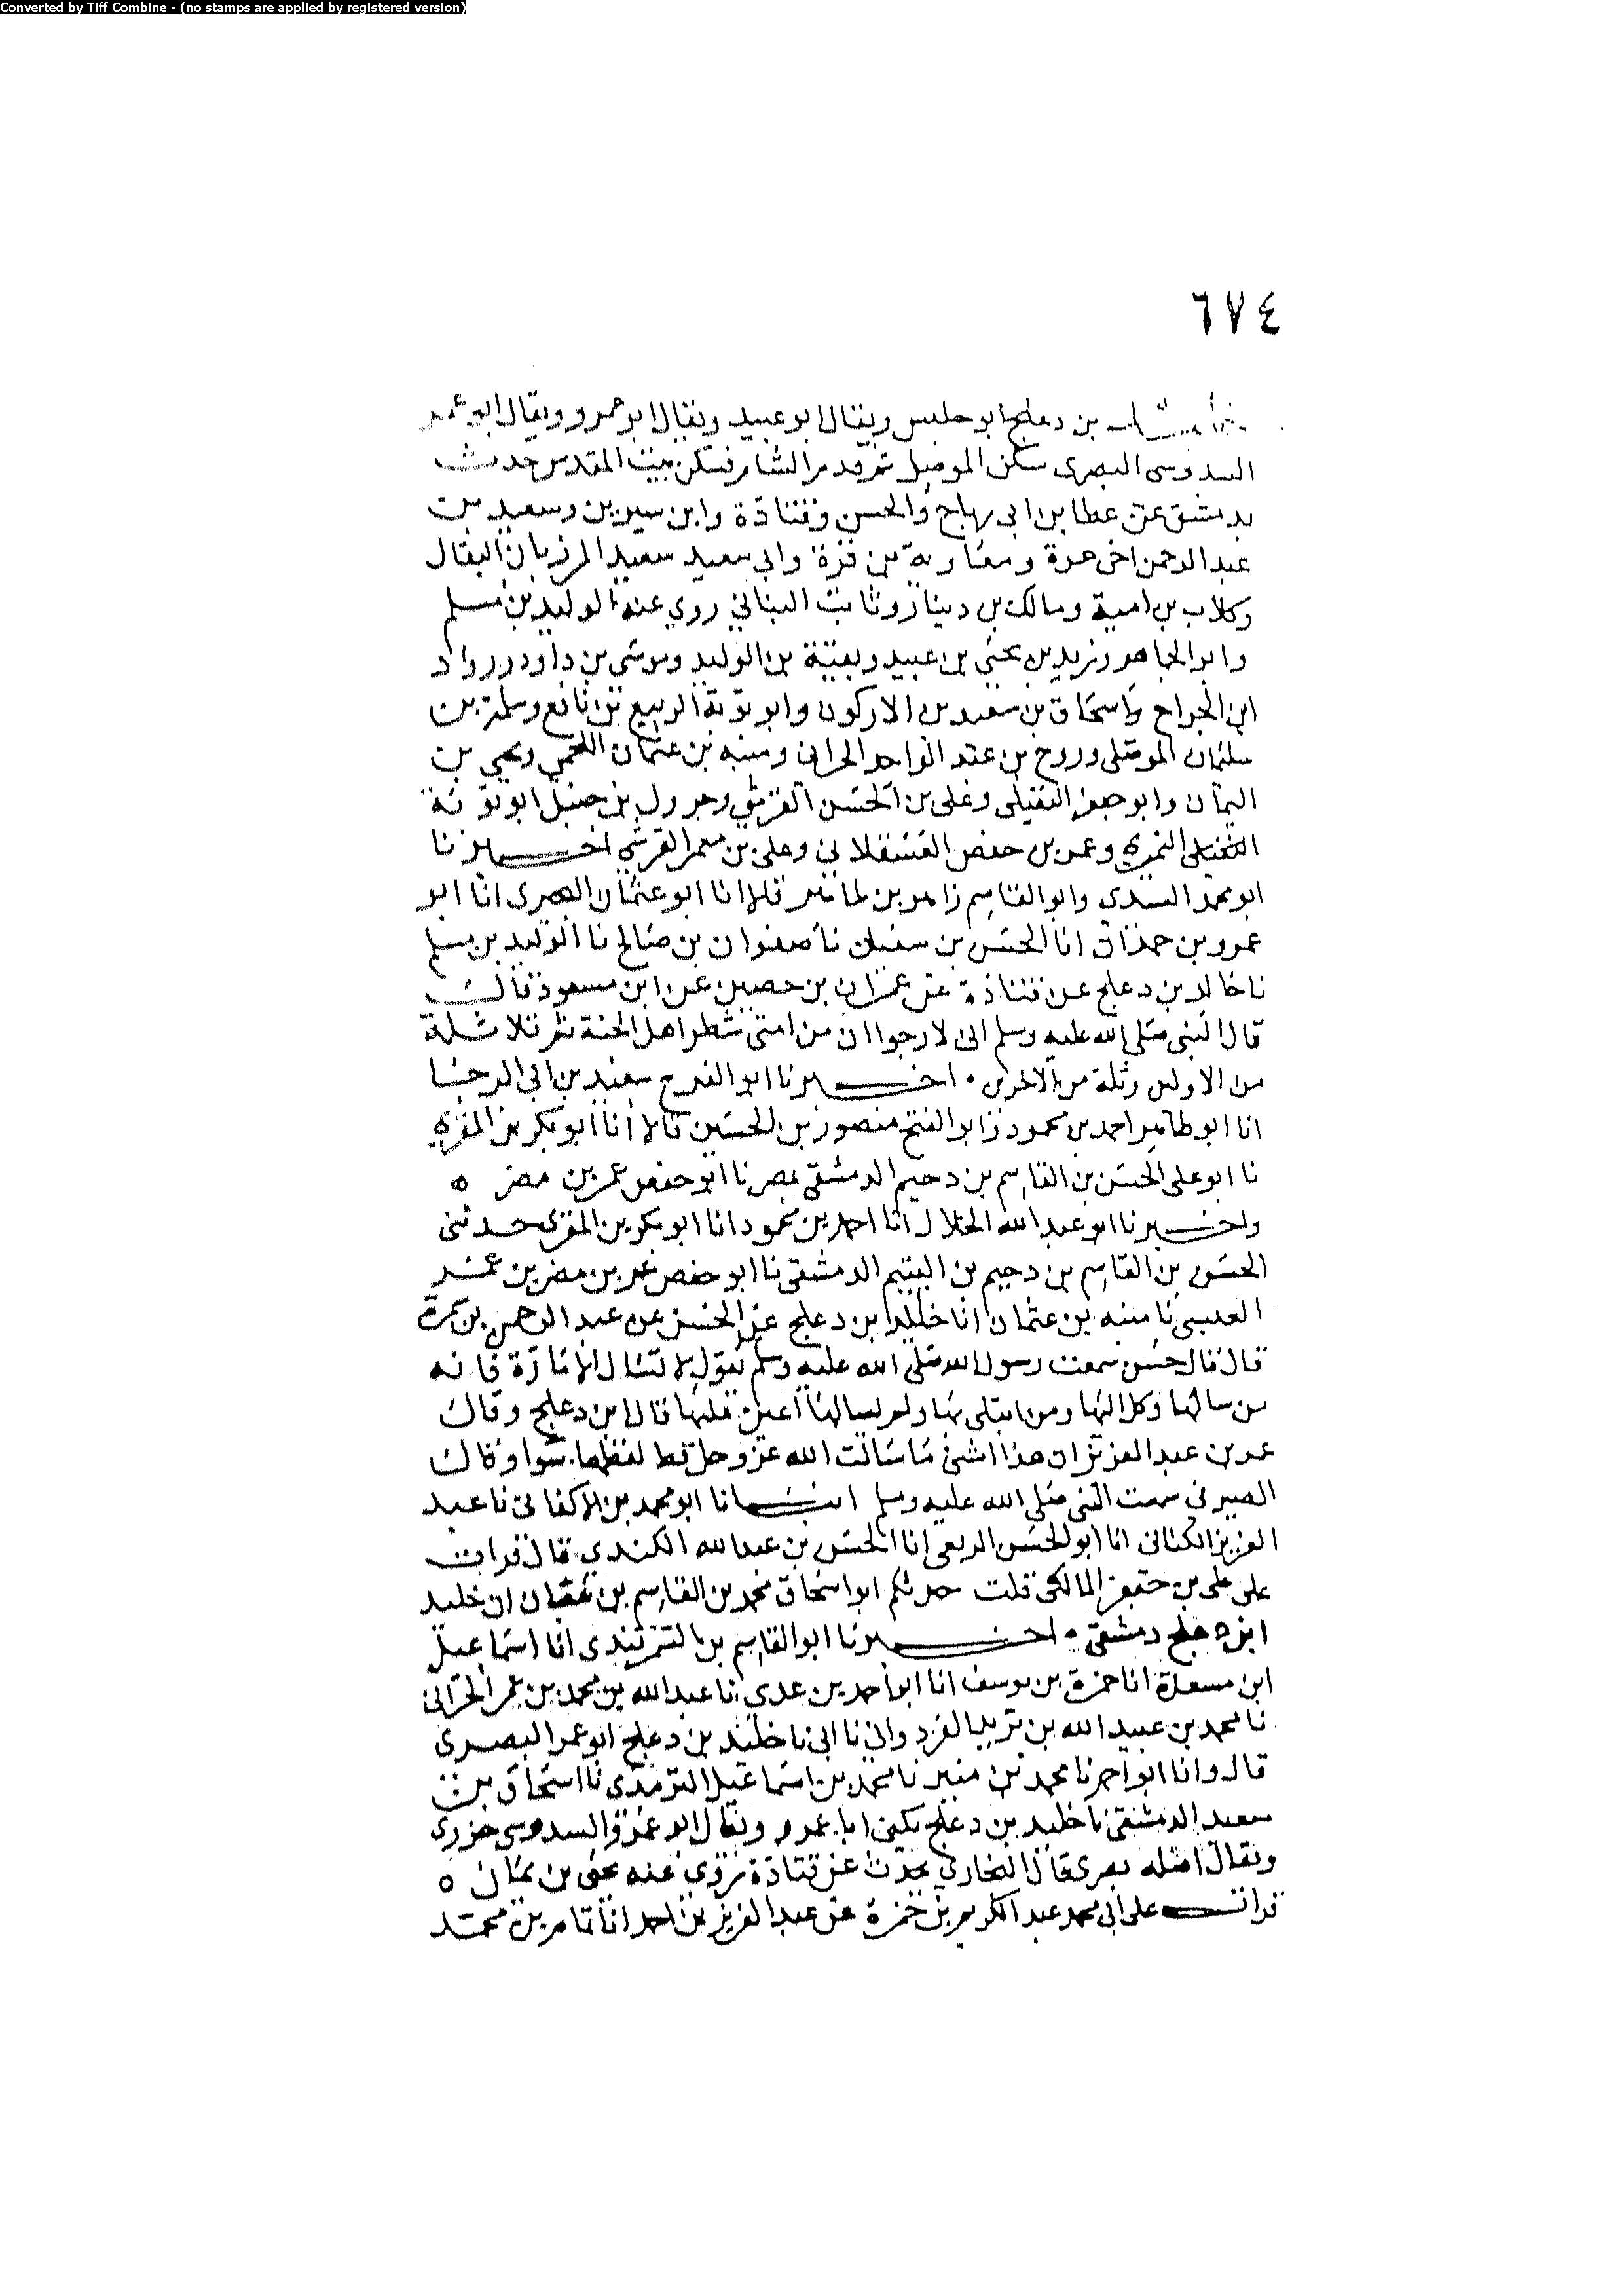 Converted by Tiff Combine - (no stamps are applied by registered version)
٦٧٤
بن دعلج ابو حلبس ويقال ابو عبيد ويقال ابو عمرو ويقال ابو عمر
السدوسى البصرى سكن الموصل ثم قدم الشام فسكن بيت المقدس حدث
بدمشق عن عطا بن ابى رباح والحسن وقتادة وابن سيرين وسعيد بن
عبد الرحمن اخى حرة ومعاوية بن قرة وابى سعيد سعيد المرزبان البقال
وكلاب بن امية ومالك بن دينار وثابت البنانى روي عنه الوليد بن مسلم
وابو الجماهر وزيد بن يحيى بن عبيد وبقية بن الوليد وموسى بن داود ورواد
ابن الجراح واسحاق بن سعيد بن الاركون وابو توبة الربيع بن نافع وسلمة بن
سليمان الموصلى وروح بن عبد الواحد الحرانى ومنبه بن عثمان اللخمى ويحيى بن
اليمان وابو جعفر النفيلى وعلى بن الحسن القرشى وجرول بن حنبل ابو توبة
النفيلى النميري وعمر بن حفص العسقلانى وعلى بن معمر القرشي اخبرنا
ابو محمد السدى وابو القاسم زاهر بن طاهر قالا انا ابو عثمان البصرى انا ابو
عمرو بن حمدان انا الحسن بن سفيان نا صفوان بن صالح نا الوليد بن مسلم
نا خالد بن دعلج عن قتادة عن عمران بن حصين عن ابن مسعود قال
قال النبى صلى الله عليه وسلم انى لارجوا ان من امتى شطر اهل الجنة ثم تلا ثلة
من الاولين وثلة من الاخرين • اخبرنا ابو الفرج سعيد بن ابى الرجا
انا ابو طاهر احمد بن محمود وابو الفتح منصور بن الحسين قالا انا ابو بكر بن المقري
نا ابو على الحسن بن القاسم بن دحيم الدمشقى بمصر نا ابو حفص عمر بن مضر ه
واخبرنا ابو عبد الله الخلال انا احمد بن محمود انا ابو بكر بن المقرى حدثنى
الحسن بن القاسم بن دحيم بن اليتيم الدمشقى نا ابو حفص عمر بن مضر بن عمر
العبسى نا منبه بن عثمان انا خليد بن دعلج عن الحسن عن عبد الرحمن بن سمرة
قال قال حسن سمعت رسول الله صلى الله عليه وسلم يقول لا تسال الامارة فانه
من سالها وكل اليها ومن ابتلى بها ولم يسالها اعين عليها قال ابن دعلج وقال
عمر بن عبد العزيز ان هذا الشئ ما سالت الله عز وجل قط لفظهما سوا وقال
الصيرفى سمعت النبى صلى الله عليه وسلم انبانا ابو محمد بن الاكفانى نا عبد
العزيز الكتانى انا ابو الحسن الربعى انا الحسن بن عبد الله الكندي قال قرات
على على بن جعفر المالكى قلت حدثكم ابو اسحاق محمد بن القاسم بن شعبان ان خليد
ابن دعلج دمشقى • اخبرنا ابو القاسم بن السمرقندى انا اسماعيل
ابن مسعدة انا حمزة بن يوسف انا ابو احمد بن عدي نا عبد الله بن محمد بن عمر الحرانى
نا محمد بن عبيد الله بن يزيد القردوانى نا ابى نا خليد بن دعلج ابو عمر البصرى
قال وانا ابو احمد نا محمد بن منير نا محمد بن اسماعيل الترمذى نا اسحاق بن
سعيد الدمشقى نا خليد بن دعلج يكنى ابا عمرو ويقال ابو عمر السدوسى جزرى
ويقال اصله بصرى قال البخاري يحدث عن قتادة روى عنه يحيى بن يمان ه
قرات على ابى محمد عبد الكريم بن حمزة عن عبد العزيز بن احمد انا تمام بن محمد